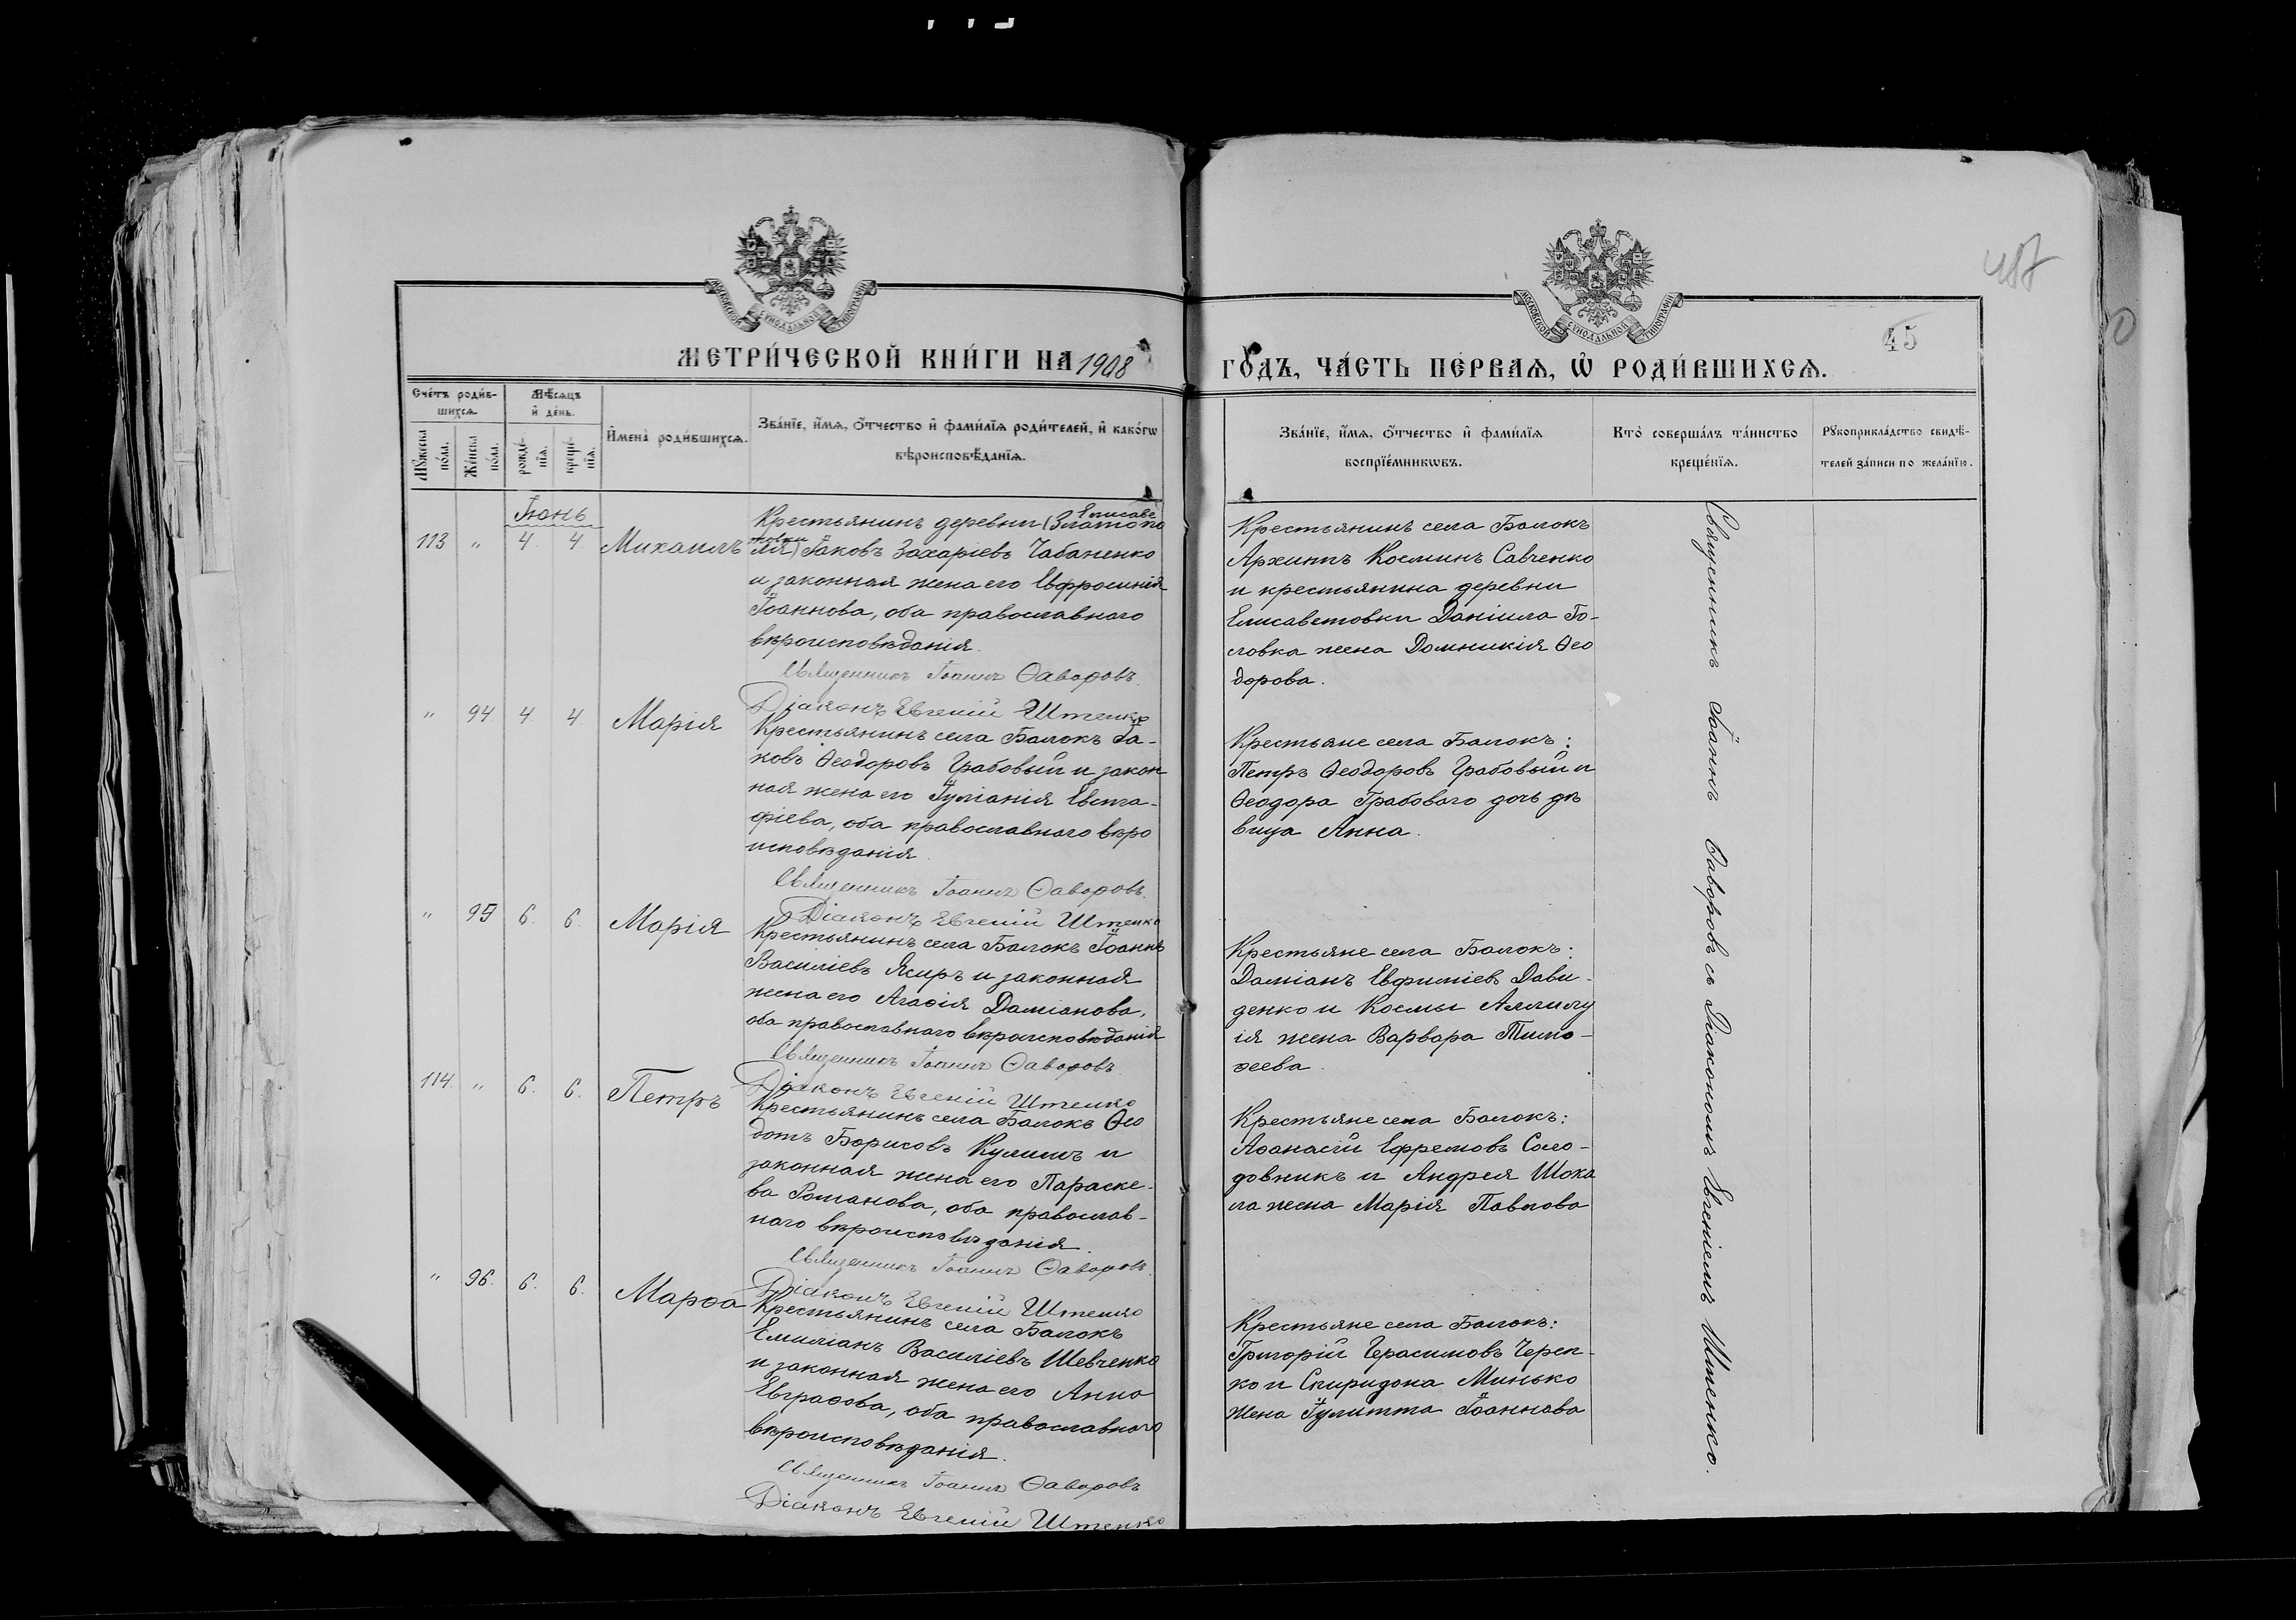 487
45
МОСКОВСКОЙ СѴНОДАЛЬНОЙ ТИПОГРАФІИ
МОСКОВСКОЙ СѴНОДАЛЬНОЙ ТИПОГРАФІИ
МЕТРИ́ЧЕСКОЙ КНИ́ГИ НА 1908
ГО́ДЪ, ЧА́СТЬ ПЕ́РВАѦ, Ѡ҆ РОДИ́ВШИХСѦ.
Сче́тъ роди́в-
шихсѧ.
Мѣ́сѧцъ
и҆ де́нь.
Мꙋ́жеска
по́ла.
Же́нска
по́ла.
рожде́-
нїѧ.
креще́-
нїѧ.
И҆мена̀ роди́вшихсѧ.
Зва́нїе, и҆́мѧ, ѻ҆́тчество и҆ фами́лїѧ роди́телей, и҆ како́гѡ
вѣроисповѣ́данїѧ.
Зва́нїе, и҆́мѧ, ѻ҆́тчество и҆ фами́лїѧ
воспрїе́мникѡвъ.
Кто̀ соверша́лъ та́инство
креще́нїѧ.
Рꙋкоприкла́дство свидѣ́-
телей за́писи по жела́нїю.
Іюнь
113 " 4 4 Михаилъ
Елисаве
Крестьянинъ деревни (Златопо
товки
ля) Іаковъ Захаріевъ Чабаненко
и законная жена его Евфросинія
Іоаннова, оба православнаго
вѣроисповѣданія.
Священникъ Іоаннъ Ѳаворовъ.
Діаконъ Евгеній Штенко
Крестьянинъ села Балокъ
Архиппъ Косминъ Савченко
и крестьянина деревни
Елисаветовки Даніила Го-
ловка жена Домникія Ѳео
дорова.
" 94 4 4 Марія
Крестьянинъ села Балокъ Іа-
ковъ Ѳеодоровъ Грабовый и закон
ная жена его Іуліанія Евста-
фіева, оба православнаго вѣро
исповѣданія.
Священникъ Іоаннъ Ѳаворовъ.
Діаконъ Евгеній Штенко
Крестьяне села Балокъ:
Петръ Ѳеодоровъ Грабовый и
Ѳеодора Грабоваго дочь дѣ
вица Анна.
" 95 6. 6. Марія
Крестьянинъ села Балокъ Іоаннъ
Василіевъ Ясиръ и законная
жена его Агаѳія Даміанова,
оба православнаго вѣроисповѣданія
Священникъ Іоаннъ Ѳаворовъ.
Діаконъ Евгеній Штенко
Крестьяне села Балокъ:
Даміанъ Евфиміевъ Дави-
денко и Космы
ія жена Варвара Тимо-
ѳеева.
114. " 6. 6. Петръ
Крестьянинъ села Балокъ Ѳео
дотъ Борисовъ Кулишъ и
законная жена его Параске-
ва Романова, оба православ-
наго вѣроисповѣданія.
Священникъ Іоаннъ Ѳаворовъ.
Діаконъ Евгеній Штенко
Крестьяне села Балокъ:
Аѳанасій Ефремовъ Соло-
довникъ и Андрея Шока
ла жена Марія Павлова
" 96. 6. 6. Марѳа
Крестьянинъ села Балокъ
Емиліанъ Василіевъ Шевченко
и законная жена его Анна
Евграфова, оба православнаго
вѣроисповѣданія.
Священникъ Іоаннъ Ѳаворовъ
Діаконъ Евгеній Штенко
Крестьяне села Балокъ:
Григорій Герасимовъ Череп-
ко и Спиридона Минько
жена Іулитта Іоаннова
Священникъ Іоаннъ Ѳаворовъ съ Діакономъ Евгеніемъ Штенко.